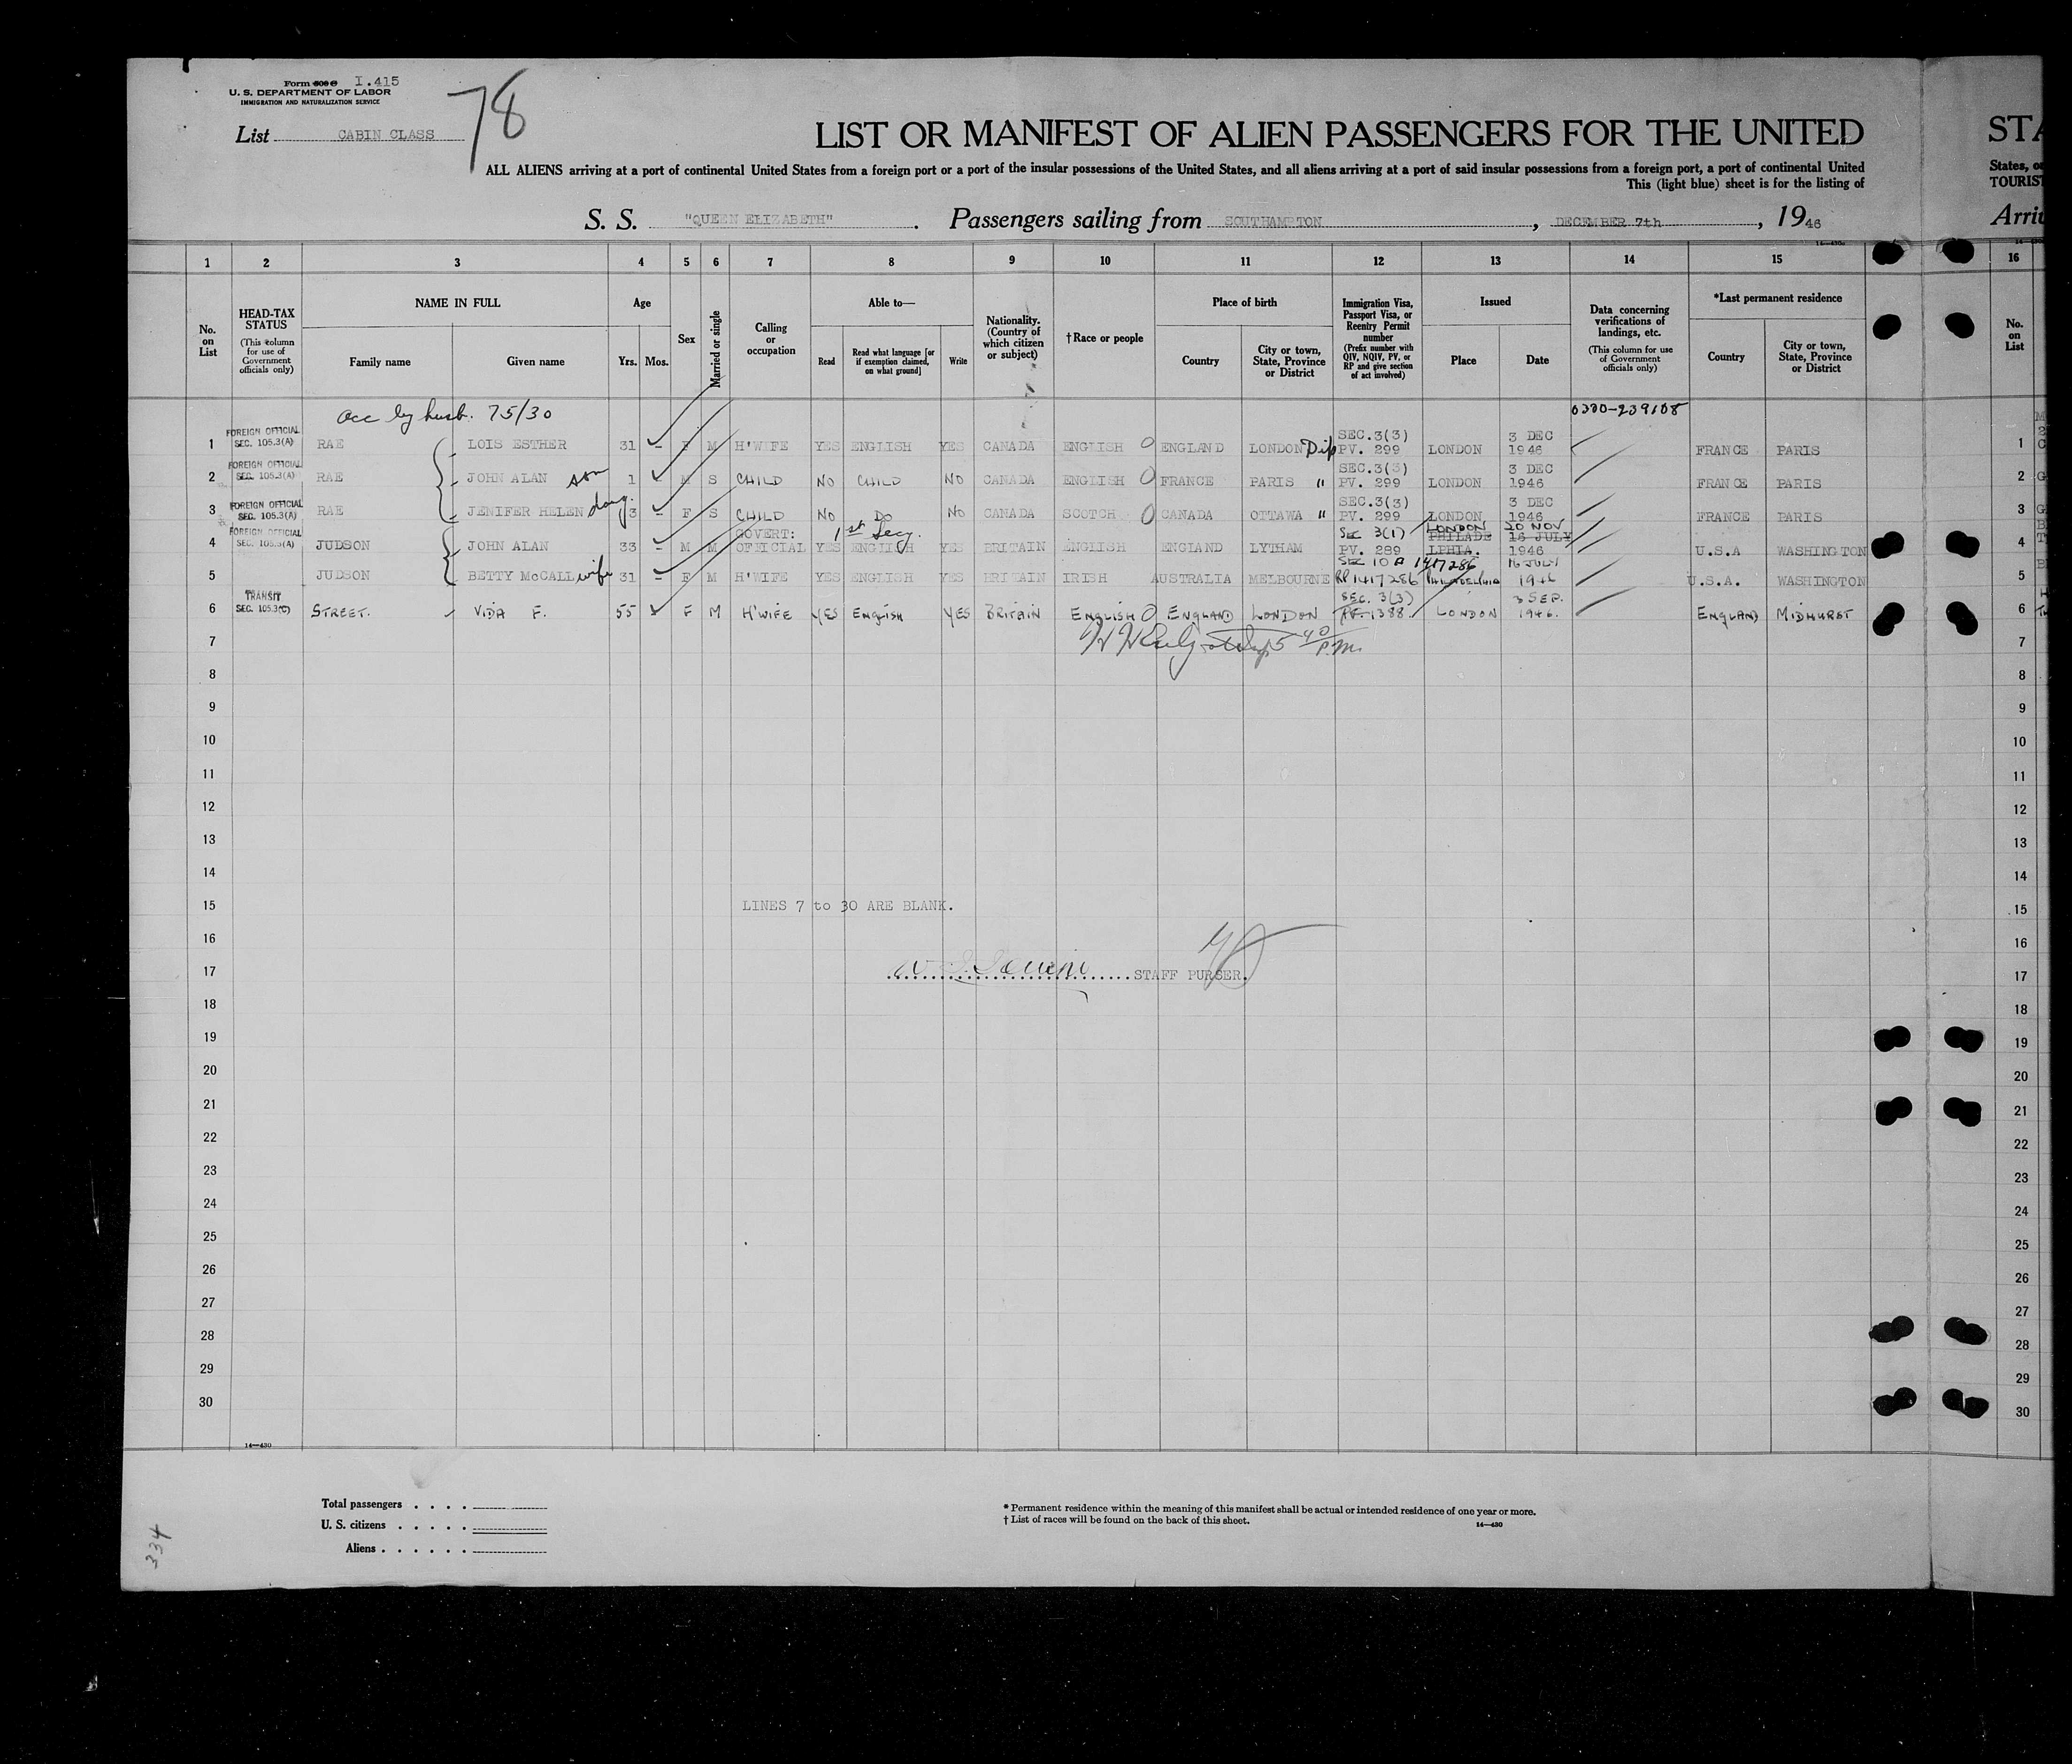 Form I.415
U. S. DEPARTMENT OF LABOR
IMMIGRATION AND NATURALIZATION SERVICE
78
List CABIN CLASS
LIST OR MANIFEST OF ALIEN PASSENGERS FOR THE UNITED
STA
ALL ALIENS arriving at a port of continental United States from a foreign port or a port of the insular possessions of the United States, and all aliens arriving at a port of said insular possessions from a foreign port, a port of continental United
States, or
This (light blue) sheet is for the listing of
TOURIST
S. S. "QUEEN ELIZABETH". Passengers sailing from SOUTHAMPTON, DECEMBER 7th, 1946
Arriv
14—430
1 2 3 4 5 6 7 8 9 10 11 12 13 14 15 16
No. on List
HEAD-TAX STATUS (This column for use of Government officials only)
NAME IN FULL
Family name Given name
Age
Yrs. Mos.
Sex
Married or single
Calling or occupation
Able to—
Read Read what language [or if exemption claimed, on what ground] Write
Nationality. (Country of which citizen or subject)
†Race or people
Place of birth
Country City or town, State, Province or District
Immigration Visa, Passport Visa, or Reentry Permit number (Prefix number with QIV, NQIV, PV, or RP and give section of act involved)
Issued
Place Date
Data concerning verifications of landings, etc. (This column for use of Government officials only)
*Last permanent residence
Country City or town, State, Province or District
No. on List
acc by husb. 75/30 0300-239108
1 FOREIGN OFFICIAL SEC. 105.3(A) RAE LOIS ESTHER 31 – F M H'WIFE YES ENGLISH YES CANADA ENGLISH ENGLAND LONDON Dip SEC.3(3) PV. 299 LONDON 3 DEC 1946 FRANCE PARIS 1
2 FOREIGN OFFICIAL SEC. 105.3(A) RAE JOHN ALAN son 1 M S CHILD NO CHILD NO CANADA ENGLISH FRANCE PARIS " SEC.3(3) PV. 299 LONDON 3 DEC 1946 FRANCE PARIS 2
3 FOREIGN OFFICIAL SEC. 105.3(A) RAE JENIFER HELEN daug. 3 – F S CHILD NO DO NO CANADA SCOTCH CANADA OTTAWA " SEC.3(3) PV. 299 LONDON 3 DEC 1946 FRANCE PARIS 3
4 FOREIGN OFFICIAL SEC. 105.3(A) JUDSON JOHN ALAN 33 – M M GOVERT: OFFICIAL 1st Secy. YES ENGLISH YES BRITAIN ENGLISH ENGLAND LYTHAM SEC 3(1) PV. 289 LONDON PHILADE LPHIA. 20 NOV 16 JULY 1946 U.S.A WASHINGTON 4
5 JUDSON BETTY McCALL wife 31 – F M H'WIFE YES ENGLISH YES BRITAIN IRISH AUSTRALIA MELBOURNE SEC 10 A RP 1417286 1417286 PHILADELPHIA 16 JULY 1946 U.S.A. WASHINGTON 5
6 TRANSIT SEC. 105.3(C) STREET. VIDA F. 55 F M H'WIFE YES ENGLISH YES BRITAIN ENGLISH ENGLAND LONDON SEC. 3(3) PV. 1388 LONDON 3 SEP. 1946. ENGLAND MIDHURST 6
7 5 40 P.M. 7
8 8
9 9
10 10
11 11
12 12
13 13
14 14
15 LINES 7 to 30 ARE BLANK. 15
16 16
17 STAFF PURSER. 17
18 18
19 19
20 20
21 21
22 22
23 23
24 24
25 25
26 26
27 27
28 28
29 29
30 30
14—430
Total passengers . . . .
U. S. citizens . . . . .
Aliens . . . . . .
* Permanent residence within the meaning of this manifest shall be actual or intended residence of one year or more.
† List of races will be found on the back of this sheet.
14—430
334